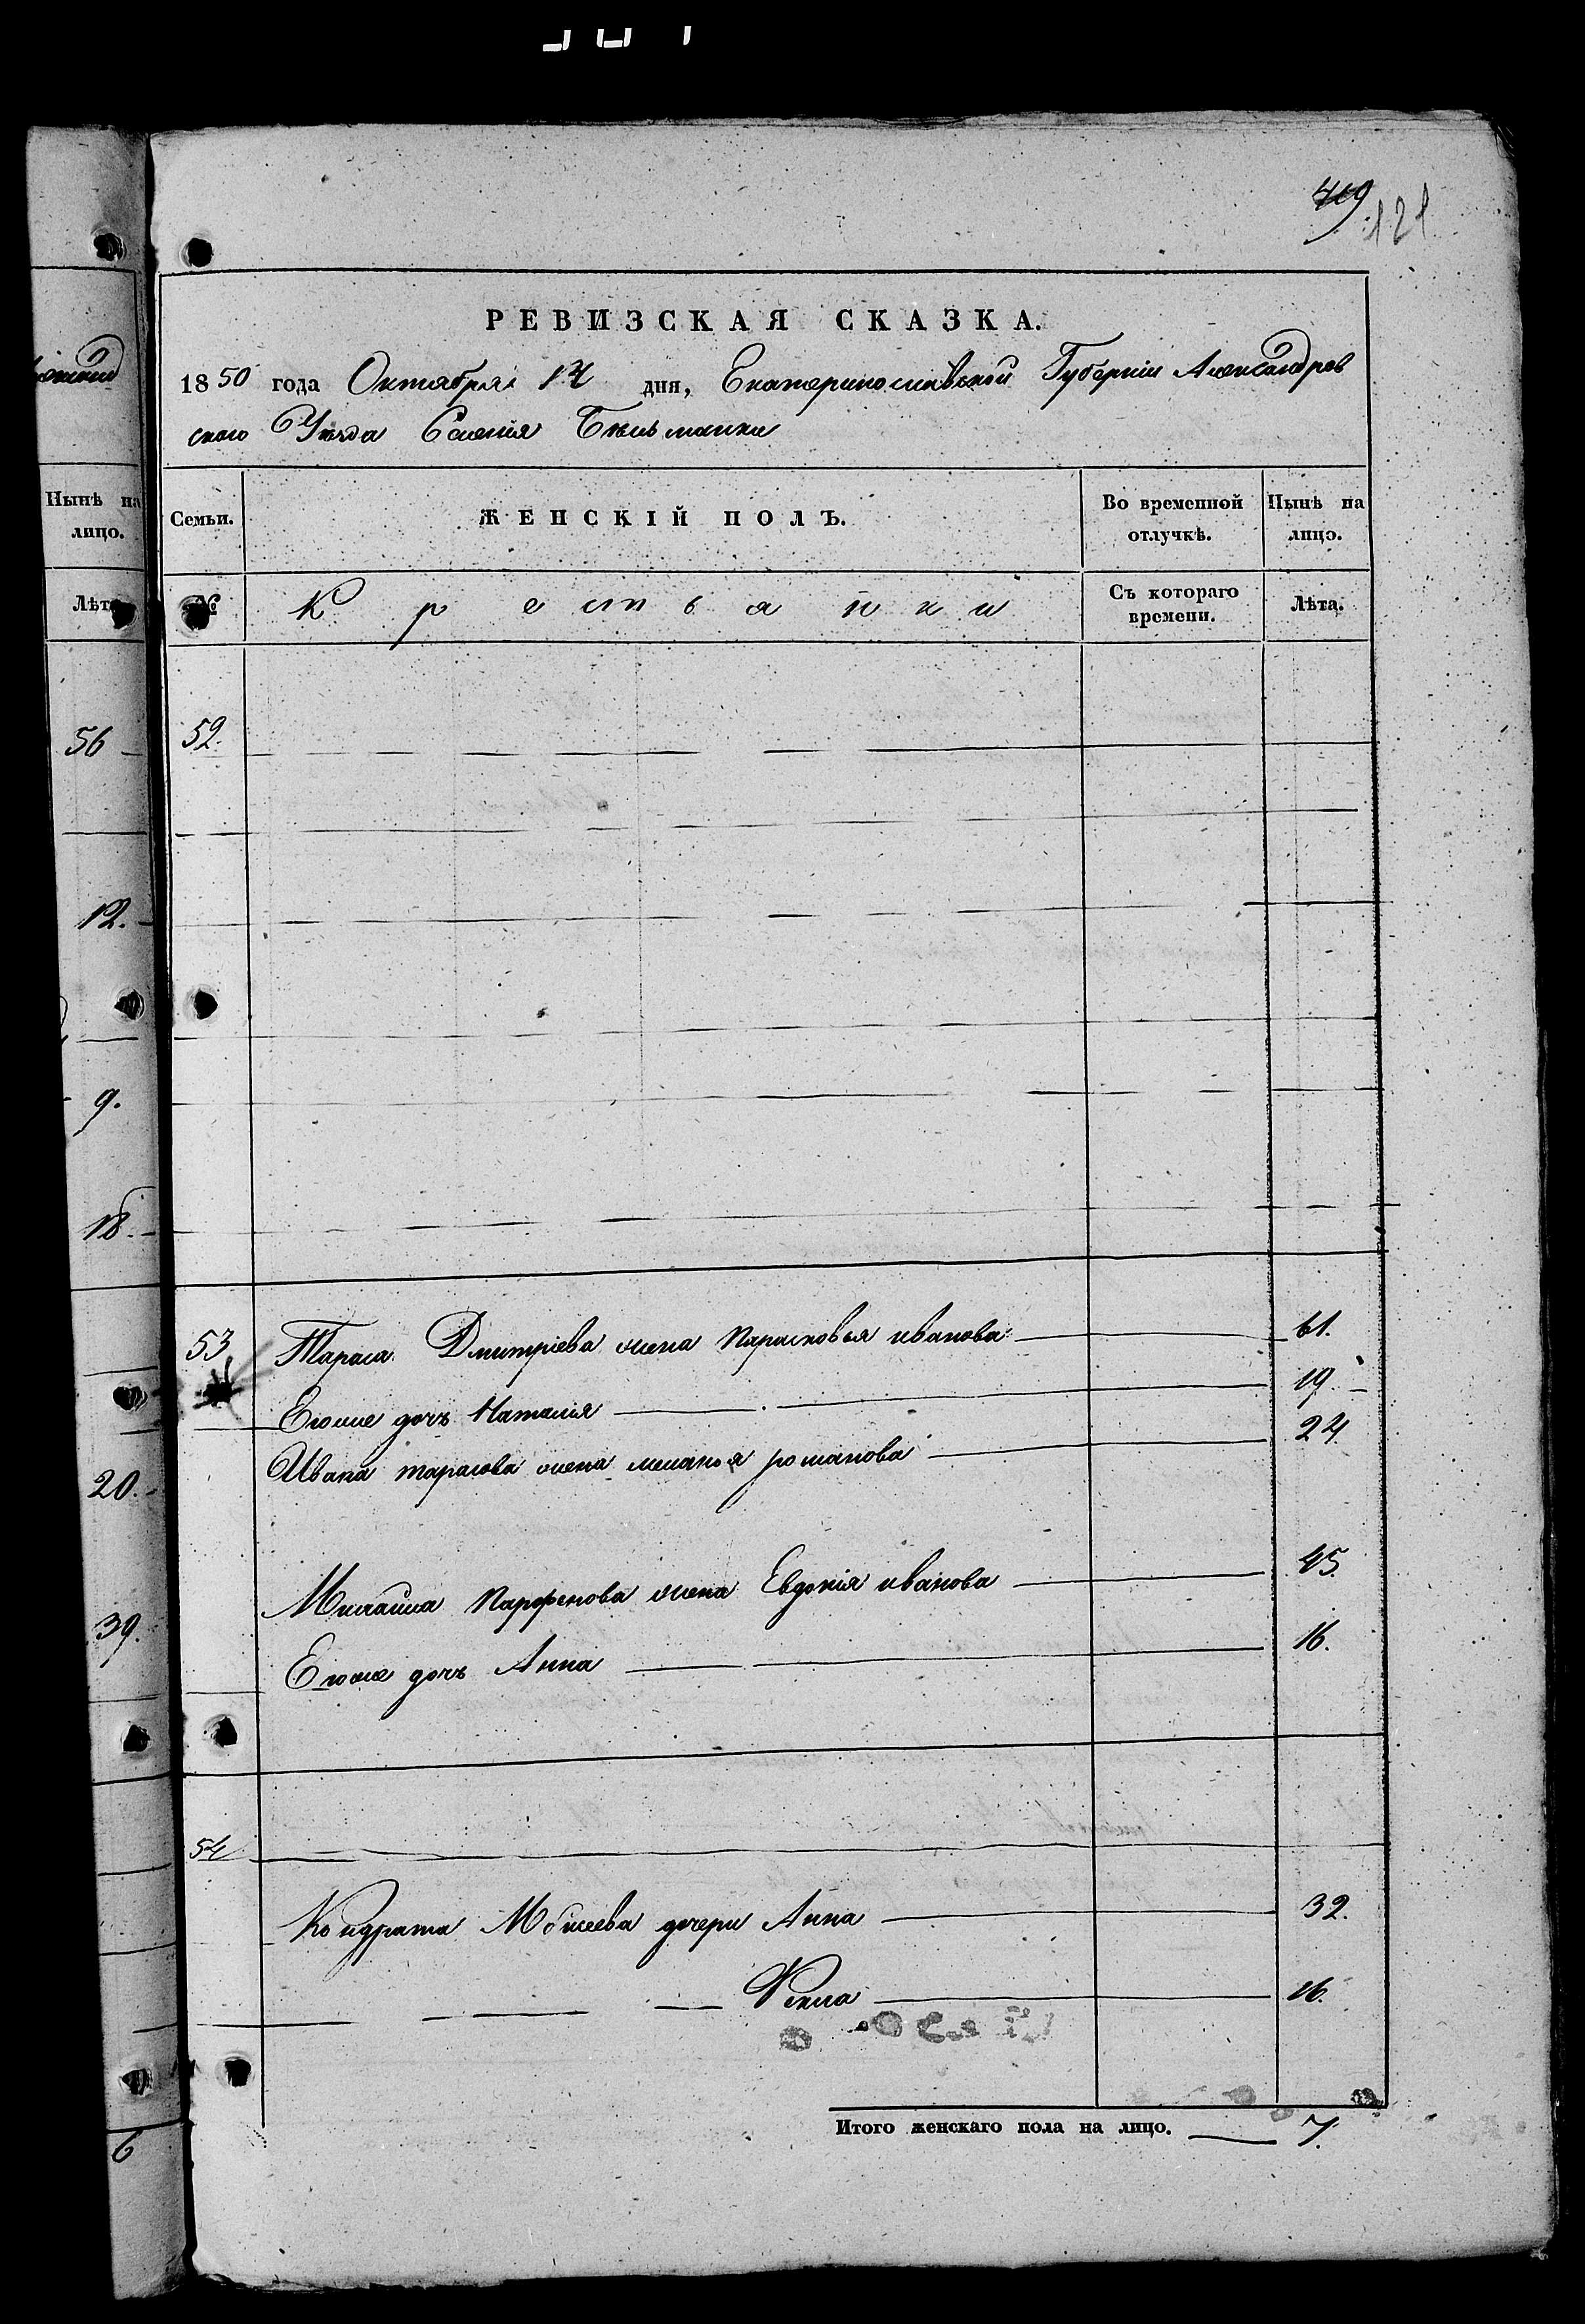 719
121
РЕВИЗСКАЯ СКАЗКА.
1850 года Октября 14 дня, Екатеринославской Губерніи Александров
скаго Уѣзда Селенія Бѣльманки
Нынѣ на лицо.
Семьи.
ЖЕНСКІЙ ПОЛЪ.
Во временной отлучкѣ.
Нынѣ на лицо.
Лѣта
№
Крестьянки
Съ котораго времени.
Лѣта.
56
52.
12.
9.
18.
53
Тараса Дмитріева жена Парасковья иванова 61.
Егоже дочь Наталья 19.
Ивана тарасова жена меланья романова 24.
20.
Михайла Парфенова жена Евдокія иванова 45.
39.
Егоже дочь Анна 16.
54
Кондрата Моисеева дочери Анна 32.
Фекла 16.
6
Итого женскаго пола на лицо. 7.